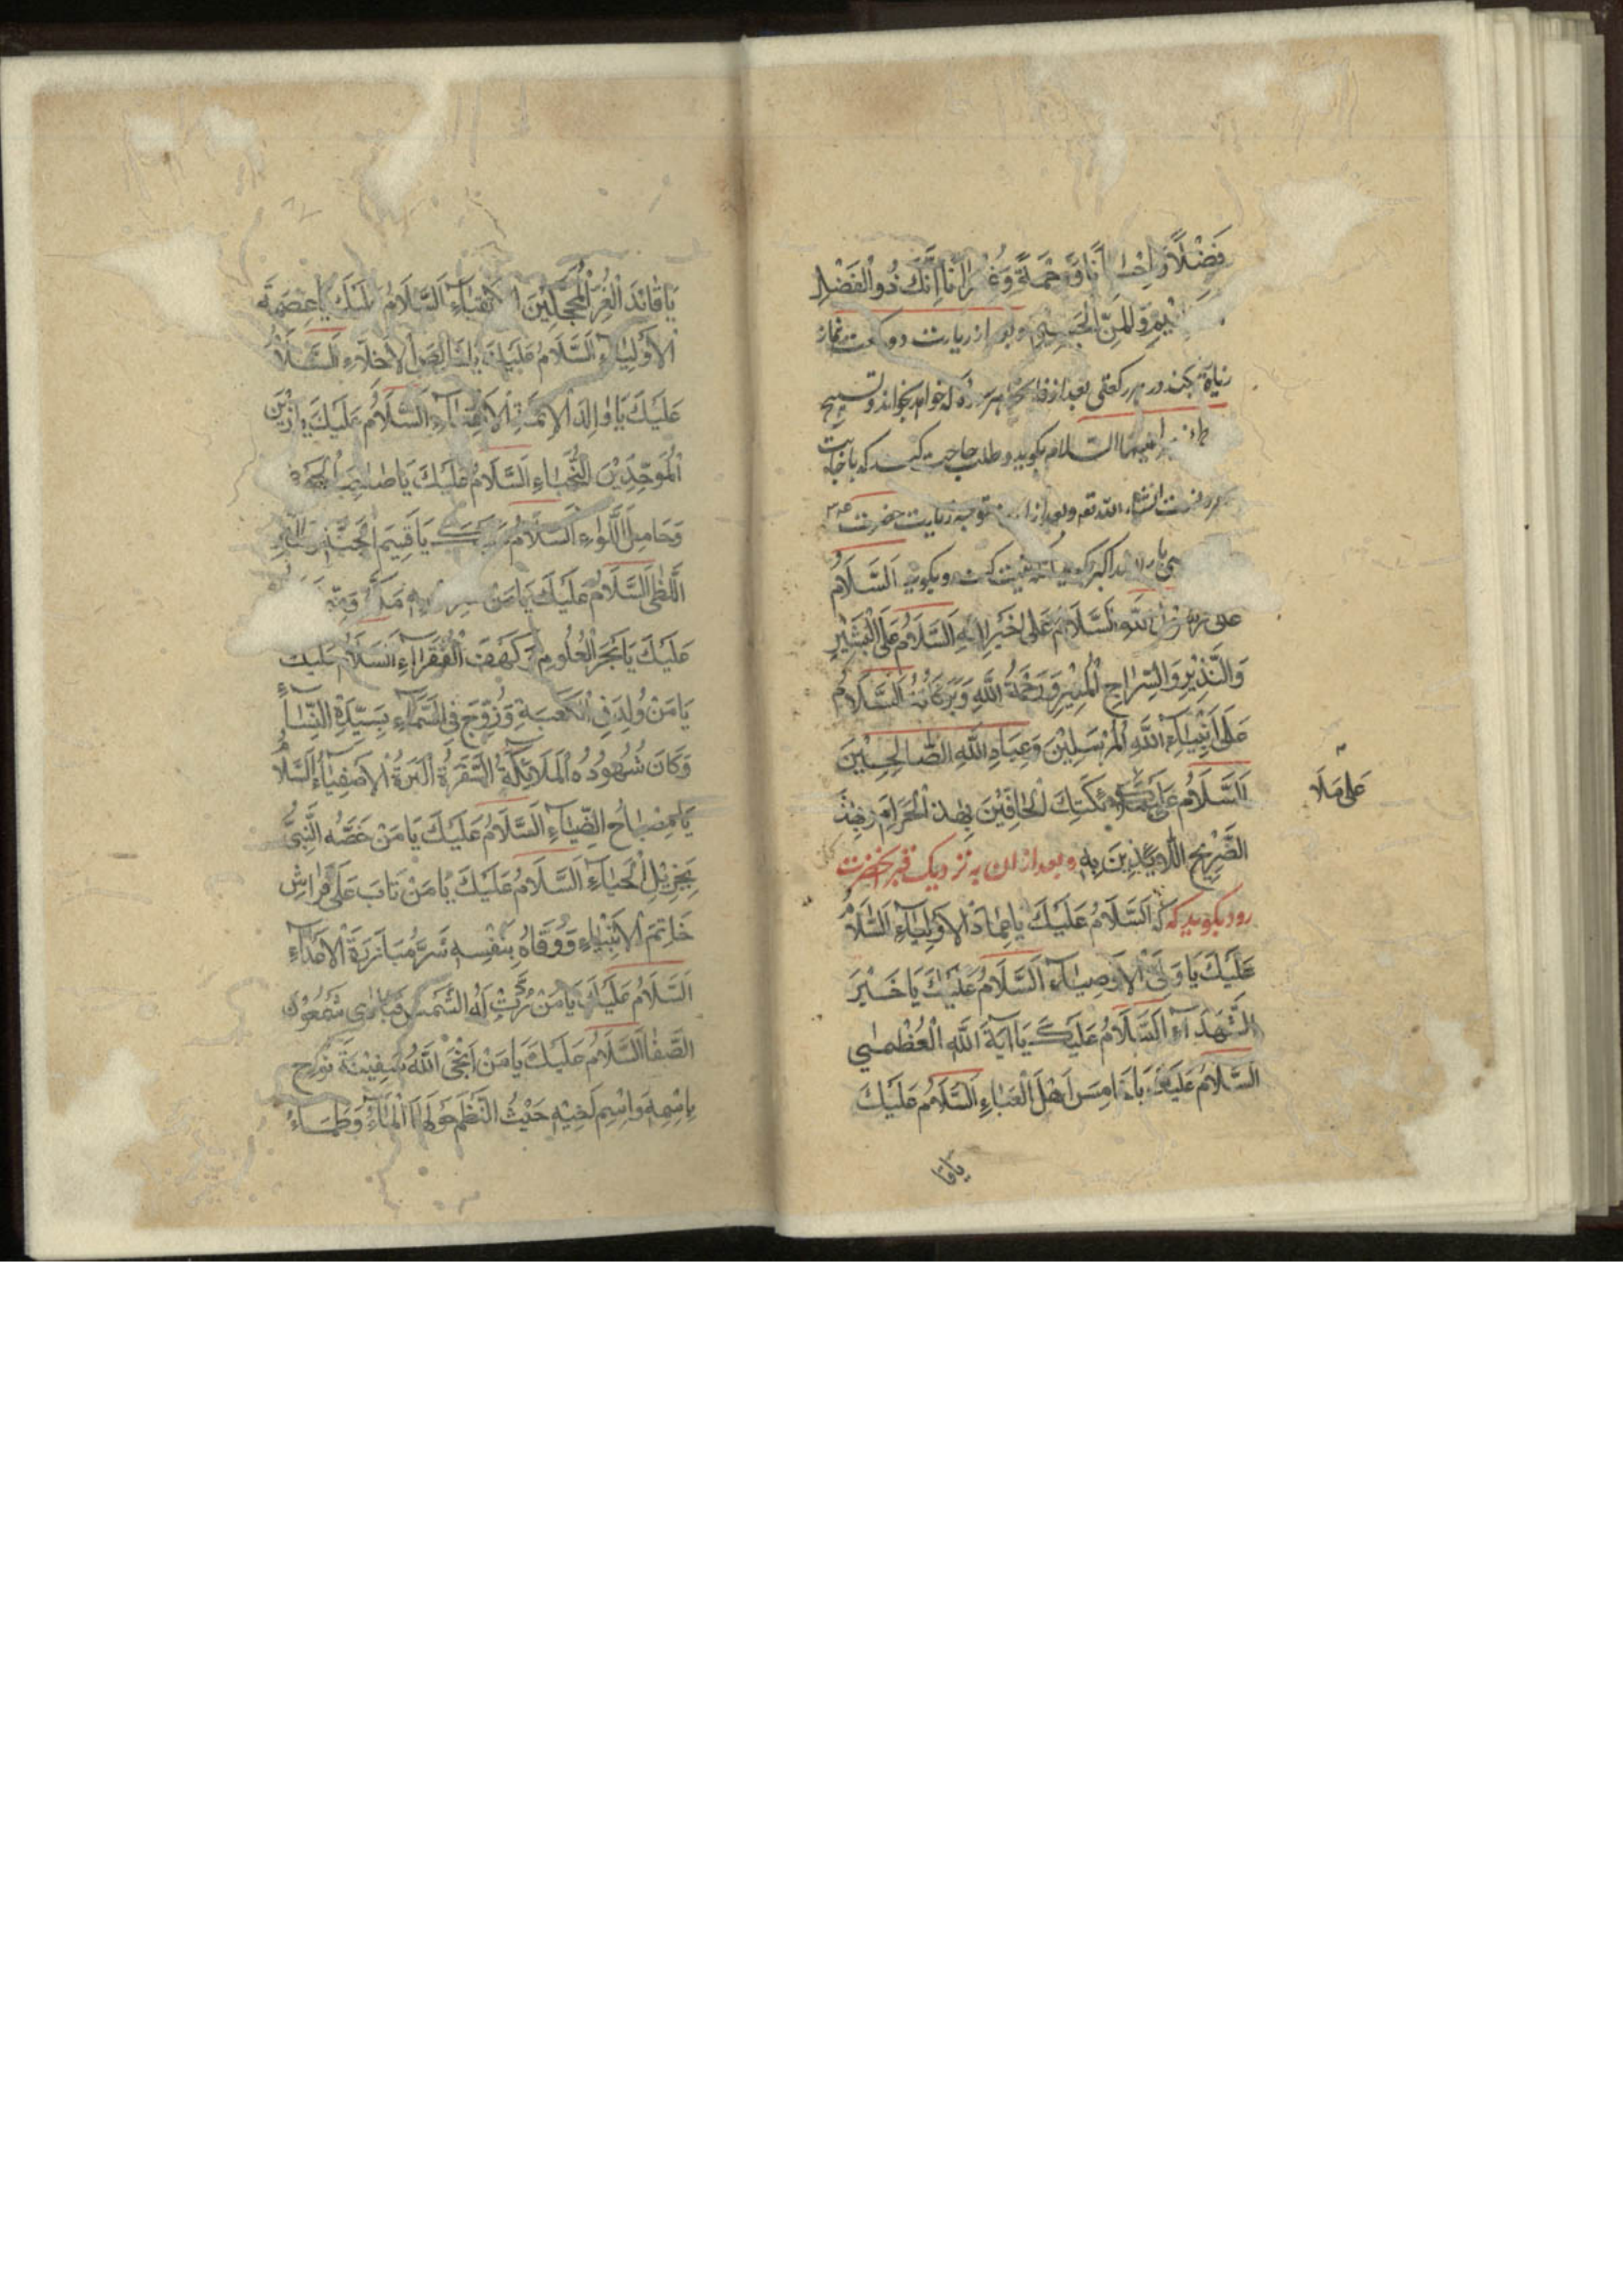 فَضْلًا وَاِحْسَانًا وَرَحْمَةً وَغُفْرَانًا اِنَّكَ ذُو الْفَضْلِ
وَالْمَنِّ الْجَسِیمِ و بعد از زیارت دو رکعت نماز
زیارة بکند در هر رکعتی بعد از فاتحه هر سوره که خواهد بخواند و تسبیح
علیها السلام بگوید و طلب حاجت کند که باجابت
انشاء الله تعم و بعد از توجه زیارت حضرت
الله اکبر بگوید و بگوید اَلسَّلَامُ
عَلٰی اللّٰهِ اَلسَّلَامُ عَلٰی خِیَرِ اللّٰهِ اَلسَّلَامُ عَلَی الْبَشِیْرِ
وَالنَّذِیْرِ وَالسِّرَاجِ الْمُنِیْرِ وَرَحْمَةُ اللّٰهِ وَبَرَکَاتُهُ اَلسَّلَامُ
عَلٰی اَنْبِیَآءِ اللّٰهِ الْمُرْسَلِیْنَ وَعِبَادِ اللّٰهِ الصَّالِحِیْنَ
اَلسَّلَامُ مَلَآئِکَتِكَ الْحَافِّیْنَ بِهٰذَا الْحَرَامِ وَبِهٰذَ
علی مَلَا
الضَّرِیْحِ اللَّآئِذِیْنَ بِهِ و بعد از ان به نزدیک قبر آنحضرت
رود بگوید که اَلسَّلَامُ عَلَیْكَ یَا عِمَادَ الْاَوْلِیَآءِ اَلسَّلَامُ
عَلَیْكَ یَا وَلِیَّ الْاَوْصِیَآءِ اَلسَّلَامُ عَلَیْكَ یَا خَیْرَ
الشُّهَدَآءِ اَلسَّلَامُ عَلَیْكَ یَا اٰیَةَ اللّٰهِ الْعُظْمٰی
اَلسَّلَامُ عَلَیْكَ یَا خَامِسَ اَهْلِ الْعَبَاءِ اَلسَّلَامُ عَلَیْكَ
یا قا
یَا قَائِدَ الْغُرِّ الْمُحَجَّلِیْنَ الْاَتْقِیَآءِ اَلسَّلَامُ عَلَیْكَ یَا عِصْمَةَ
الْاَوْلِیَآءِ اَلسَّلَامُ عَلَیْكَ یَا خَالِصَ الْاَخِلَّاءِ اَلسَّلَامُ
عَلَیْكَ یَا وَالِدَ الْاَئِمَّةِ الْاُمَنَآءِ اَلسَّلَامُ عَلَیْكَ یَا زَیْنَ
الْمُوَحِّدِیْنَ النُّجَبَاءِ اَلسَّلَامُ عَلَیْكَ یَا صَاحِبَ الْحَوْضِ
وَحَامِلَ اللِّوَاءِ اَلسَّلَامُ عَلَیْكَ یَا قَسِیْمَ الْجَنَّةِ
اللَّظٰی اَلسَّلَامُ عَلَیْكَ یَا مَنْ
عَلَیْكَ یَا بَحْرَ الْعُلُومِ وَکَهْفَ الْفُقَرَآءِ اَلسَّلَامُ عَلَیْكَ
یَا مَنْ وُلِدَ فِی الْکَعْبَةِ وَزُوِّجَ فِی السَّمَآءِ بِسَیِّدَةِ النِّسَآءِ
وَکَانَ شُهُودُهُ الْمَلَائِکَةُ السَّفَرَةُ الْبَرَةُ الْاَصْفِیَآءُ اَلسَّلَامُ
یَا مِصْبَاحَ الضِّیَاءِ اَلسَّلَامُ عَلَیْكَ یَا مَنْ خَصَّهُ النَّبِیُّ
بِجَزِیْلِ الْحَیَاءِ اَلسَّلَامُ عَلَیْكَ یَا مَنْ بَاتَ عَلٰی فِرَاشِ
خَاتِمِ الْاَنْبِیَآءِ وَوَقَاهُ بِنَفْسِهِ شَرَّ مُبَارَزَةِ الْاَعْدَآءِ
اَلسَّلَامُ عَلَیْكَ یَا مَنْ رُدَّتْ لَهُ الشَّمْسُ فَسَامٰی شَمْعُوْنَ
الصَّفَا اَلسَّلَامُ عَلَیْكَ یَا مَنْ اَنْجَی اللّٰهُ سَفِیْنَةَ نُوْحٍ
بِاسْمِهِ وَاسْمِ اَخِیْهِ حَیْثُ الْتَطَمَ حَوْلَهَا الْمَآءُ وَطَمَاءُ